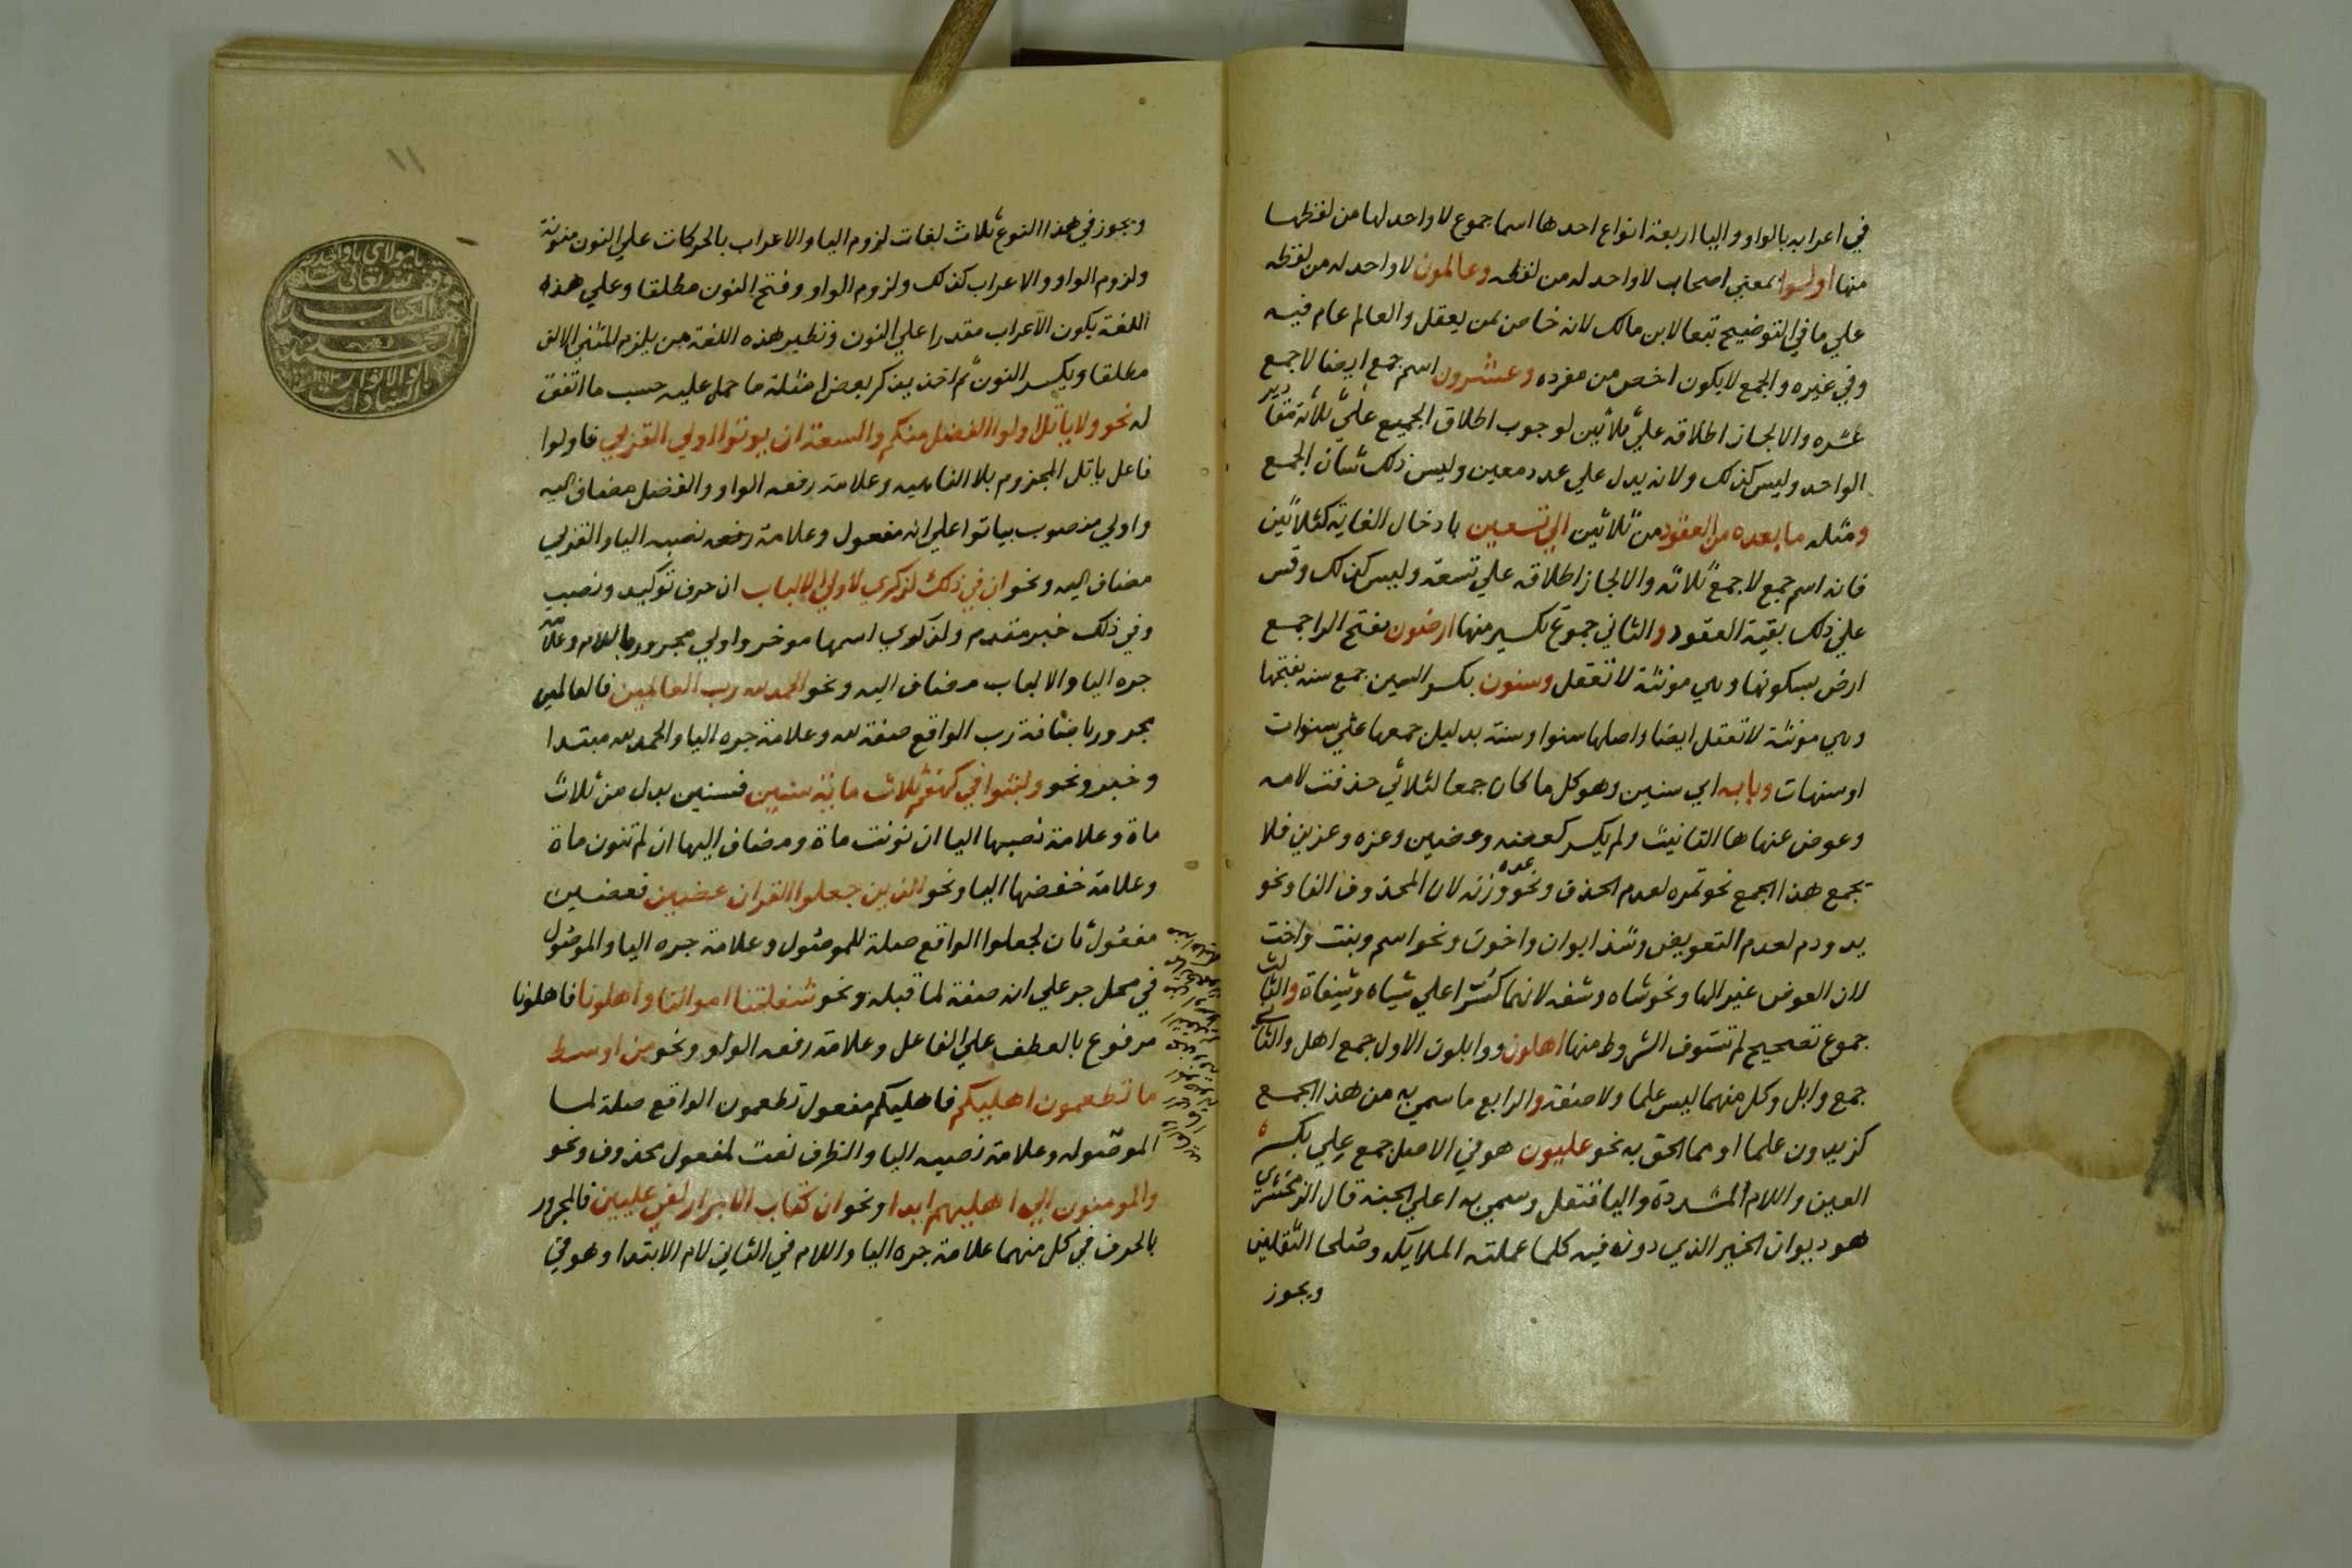 في اعرابه بالواو واليا اربعة انواع احدها اسما جموع لا واحد لها من لفظها
منها اولوا بمعني اصحاب لا واحد له من لفظه وعالمون لا واحد له من لفظه
علي ما في التوضيح تبعا لابن مالك لانه خاص بمن يعقل والعالم عام فيه
وفي غيره والجمع لا يكون اخص من مفرده وعشرون اسم جمع ايضا لا جمع
عشره والا لجاز اطلاقه علي ثلاثين لوجوب اطلاق الجميع علي ثلاثة مقادير
الواحد وليس كذلك ولانه يدل علي عدد معين وليس ذلك شان الجمع
ومثله ما بعده من العقود من ثلاثين الي تسعين بادخال الغاية كثلاثين
فانه اسم جمع لا جمع ثلاثه والا لجاز اطلاقه علي تسعة وليس كذلك وقس
علي ذلك بقية العقود والثاني جموع تكسير منها ارضون بفتح الرا جمع
ارض بسكونها وهي مونثة لا تعقل وسنون بكسر السين جمع سنه بفتحها
وهي مونثة لا تعقل ايضا واصلها سنوا وسنة بدليل جمعها علي سنوات
او سنهات وبابه اي سنين وهو كل ما كان جمعا لثلاثي حذفت لامه
وعوض عنها ها التانيث ولم يكسر كعضه وعضين وعزه وعزين فلا
يجمع هذا الجمع نحو تمره لعدم الحذف ونحو عده وزنه لان المحذوف الفا ونحو
يد ودم لعدم التعويض وشذ ابوان واخون ونحو اسم وبنت واخت
لان العوض غير الها ونحو شاه وشفه لانهما كسرا علي شياه وشفاة والثالث
جموع تصحيح لم تستوف الشروط منها اهلون ووابلون الاول جمع اهل والثاني
جمع وابل وكل منهما ليس علما ولا صفة والرابع ما سمي به من هذا الجمع
كزيدون علما او مما الحق به نحو عليون هو في الاصل جمع علي بكسره
العين واللام المشددة واليا فنقل وسمي به اعلي الجنة قال الزمخشري
هو ديوان الخير الذي دون فيه كلما عملته الملايكه وصلحا الثقلين
ويجوز
ويجوز في هذا النوع ثلاث لغات لزوم اليا والاعراب بالحركات علي النون منونة
ولزوم الواو والاعراب كذلك ولزوم الواو وفتح النون مطلقا وعلي هذه
اللغة يكون الاعراب مقدرا علي النون ونظير هذه اللغة من يلزم المثني الالف
مطلقا ويكسر النون ثم اخذ يذكر بعض امثلة ما حمل عليه حسب ما اتفق
له نحو ولا ياتل اولوا الفضل منكم والسعة ان يوتوا اولي القربي فاولوا
فاعل ياتل المجزوم بلا الناهيه وعلامة رفعه الواو والفضل مضاف اليه
واولي منصوب بياتوا علي انه مفعول وعلامة رفعه نصبه اليا والقربي
مضاف اليه ونحو ان في ذلك لذكري لاولي الالباب ان حرف توكيد ونصب
وفي ذلك خبر مقدم ولذكري اسمها موخر واولي مجرور باللام وعلامة
جره اليا والالباب مضاف اليه ونحو الحمد لله رب العالمين فالعالمين
مجرور باضافة رب الواقع صفة لله وعلامة جره اليا والحمد لله مبتدا
وخبر ونحو ولبثوا في كهفهم ثلاث ماية سنين فسنين بدل من ثلاث
ماة وعلامة نصبها اليا ان نونت ماة ومضاف اليها ان لم تنون ماة
وعلامة خفضها اليا ونحو الذين جعلوا القران عضين فعضين
مفعول ثان لجعلوا الواقع صلة للموصول وعلامة جره اليا والموصول
في محل جر علي انه صفة لما قبله ونحو شغلتنا اموالنا واهلونا فاهلونا
مرفوع بالعطف علي الفاعل وعلامة رفعه الواو ونحو من اوسط
ما تطعمون اهليكم فاهليكم مفعول تطعمون الواقع صلة لما
الموصوله وعلامة نصبه اليا والظرف نعت لمفعول محذوف ونحو
والمومنون الي اهليهم ابدا ونحو ان كتاب الابرار لفي عليين فالمجرور
بالحرف في كل منهما علامة جره اليا واللام في الثاني لام الابتدا وهو في
١١